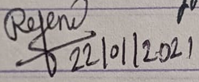 Rejend
22/01/2021